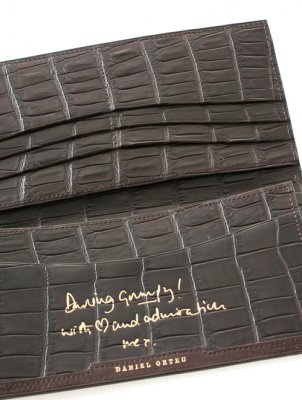 Darling Grumpy!
with ♡ and admiration
me x.
DANIEL ORTEU